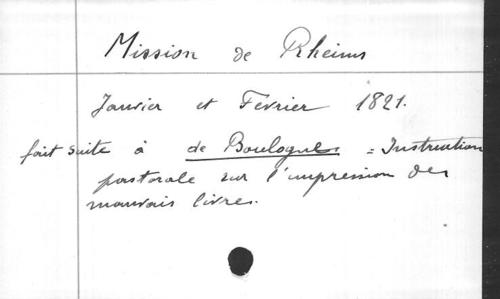 Mission de Rheims
Janvier et Février 1821.
fait suite à de Boulogne = Instruction
pastorale sur l'impression des
mauvais livres.